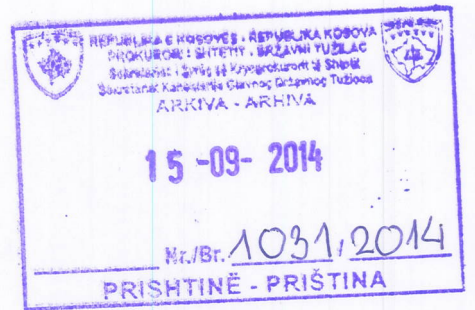 REPUBLIKA E KOSOVËS - REPUBLIKA KOSOVA
PROKURORI I SHTETIT - DRŽAVNI TUŽILAC
Sekretariati i Zyrës së Kryeprokurorit të Shtetit
Sekretariat Kancelarije Glavnog Državnog Tužioca
ARKIVA - ARHIVA
15 -09- 2014
Nr./Br. 1031, 2014
PRISHTINË - PRIŠTINA